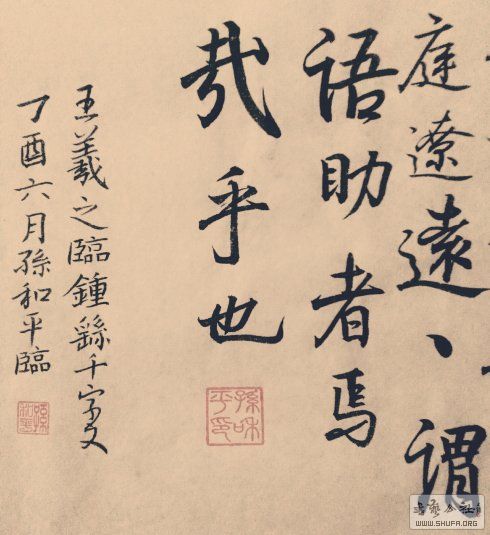 庭遼遠、謂
语助者焉
哉乎也
王羲之臨鍾繇千字文
丁酉六月孫和平臨
孫和平印
WWW.SHUFA.ORG